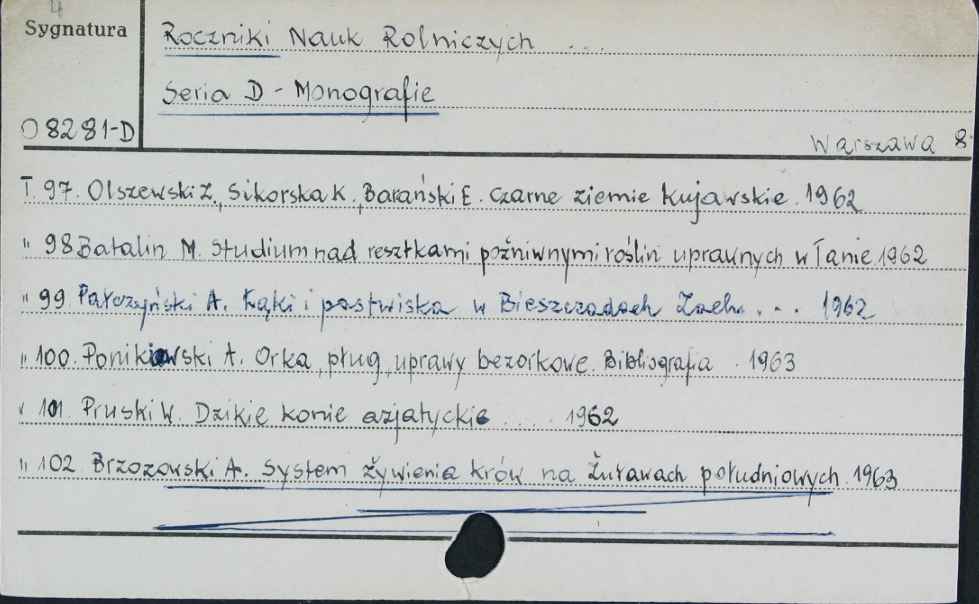 4
Sygnatura
Roczniki Nauk Rolniczych ...
Seria D - Monografie
O 8281-D
Warszawa 8
T. 97. Olszewski Z., Sikorska K., Barański E. Czarne ziemie Kujawskie. 1962
" 98 Batalin M. Studium nad resztkami pożniwnymi roślin uprawnych w łanie. 1962
" 99. Pałczyński A. Łąki i pastwiska w Bieszczadach Zach. . . 1962
" 100. Ponikiowski A. Orka, pług, uprawy bezorkowe. Bibliografia . 1963
" 101. Pruski W. Dzikie konie azjatyckie .... 1962
" 102 Brzozowski A. System żywienia krów na Żuławach południowych. 1963